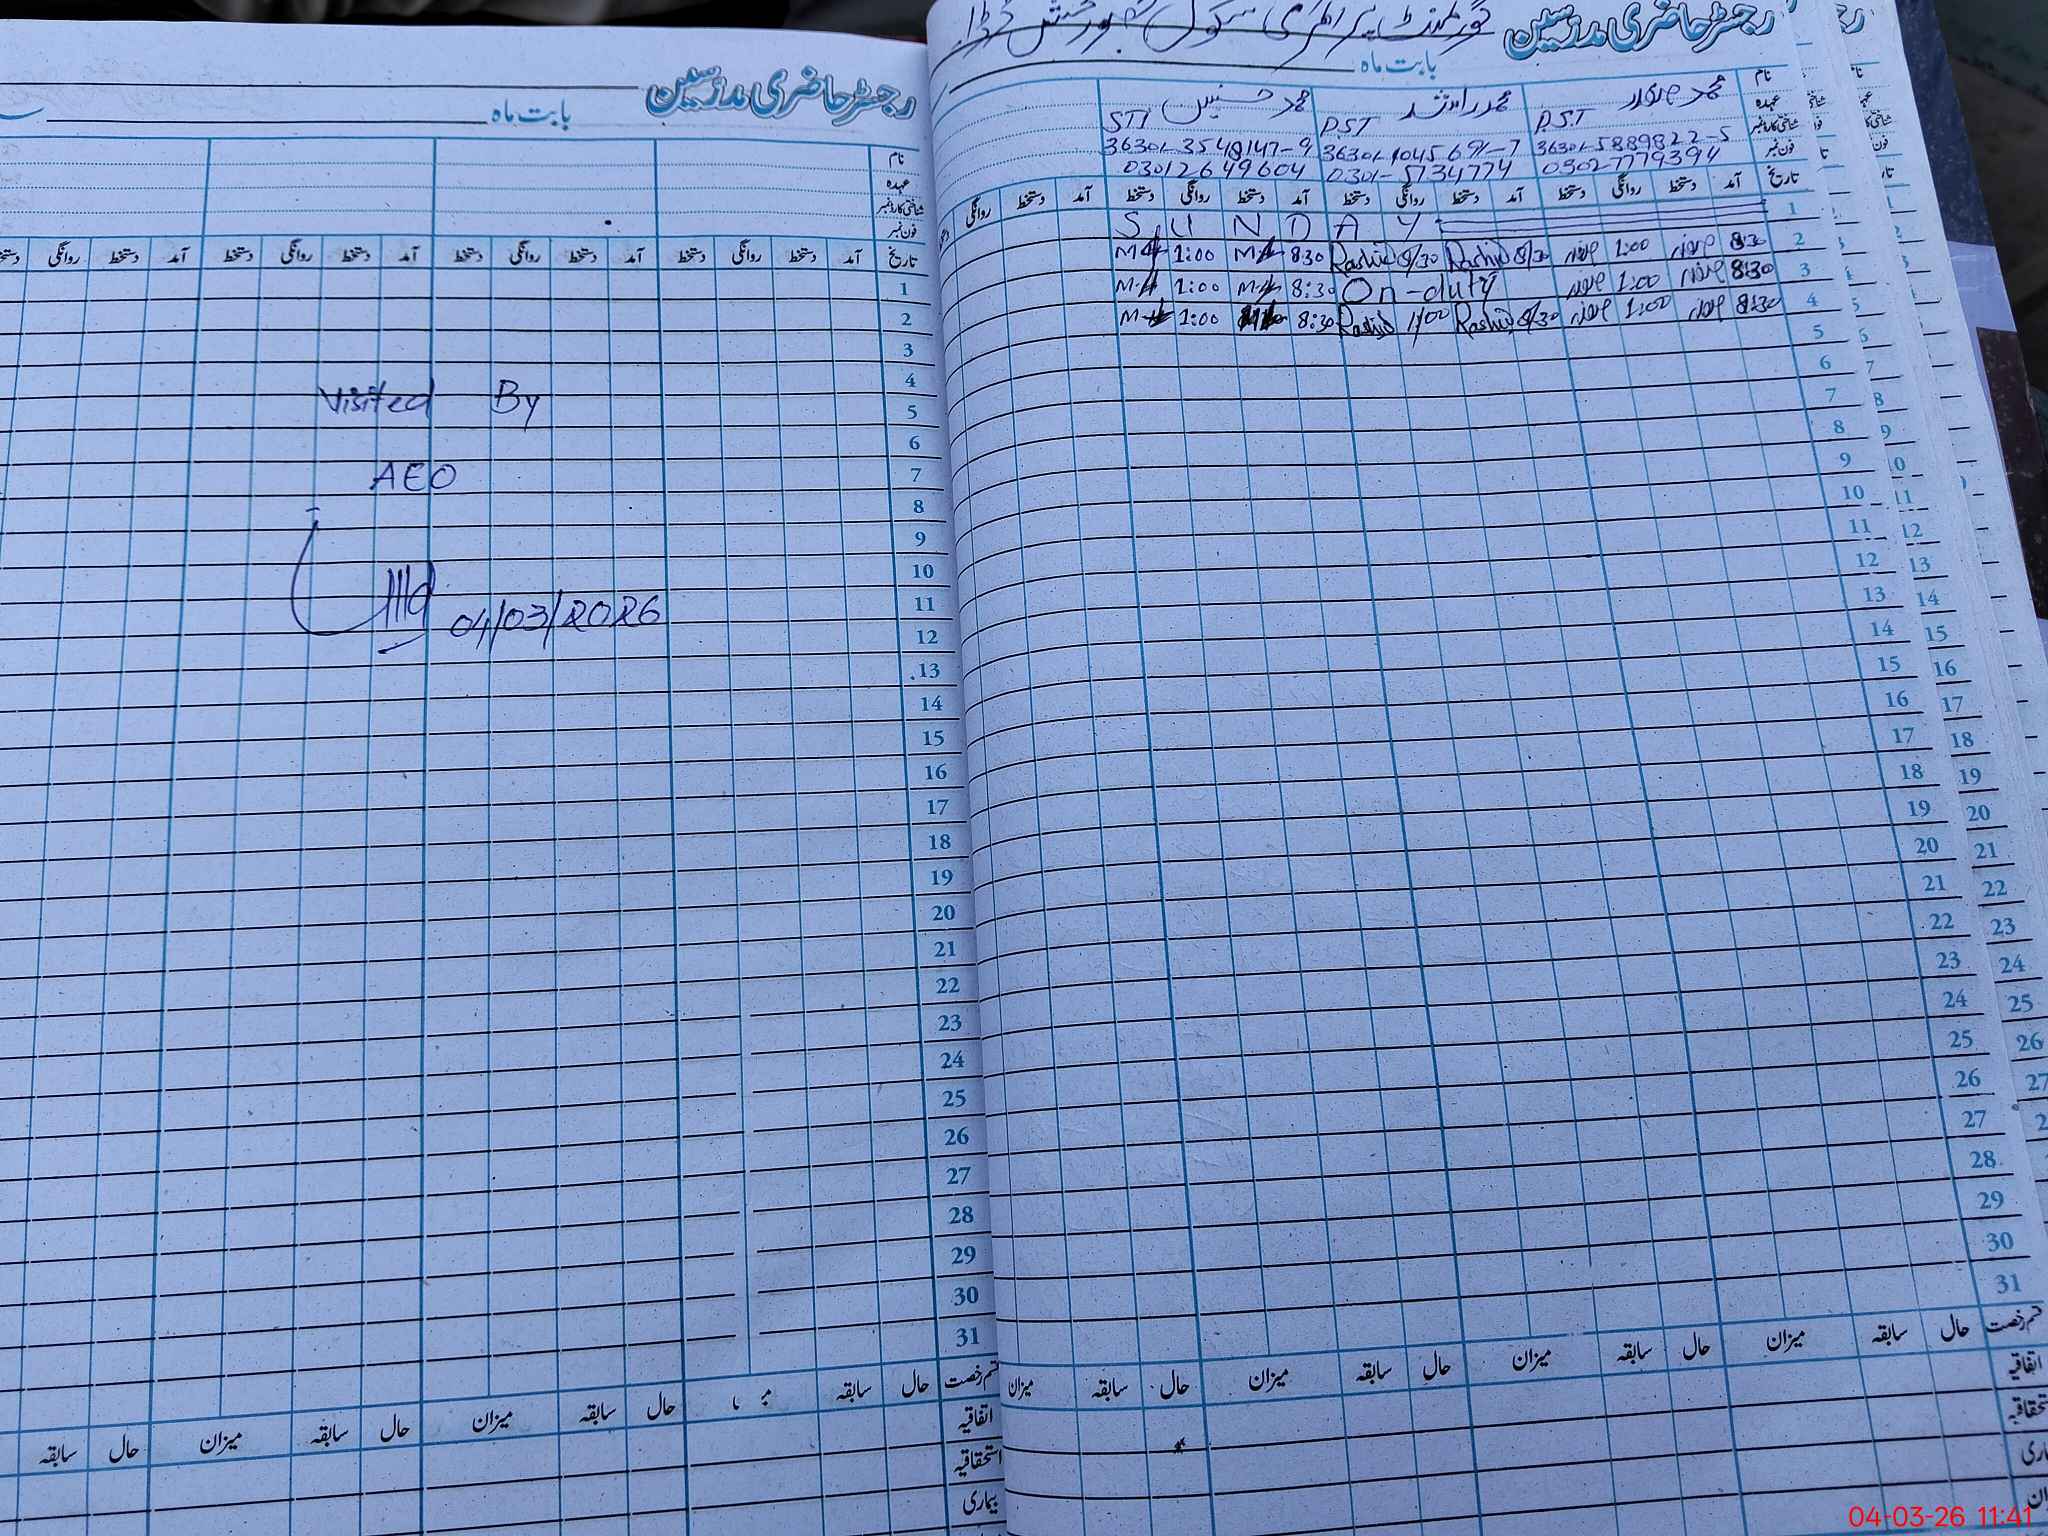 رجسٹر حاضری مدرسین
بابت ماہ
نام
عہدہ
شناختی کارڈ نمبر
فون نمبر
تاریخ آمد دستخط روانگی دستخط آمد دستخط روانگی دستخط آمد دستخط روانگی دستخط آمد
1
2
3
4
Visited By
5
6
AEO
7
8
9
10
11
04/03/2026
12
13
14
15
16
17
18
19
20
21
22
23
24
25
26
27
28
29
30
31
قسم رخصت حال سابقہ حال سابقہ میزان حال سابقہ میزان حال سابقہ
اتفاقیہ
استحقاقیہ
بیماری
رجسٹر حاضری مدرسین گورنمنٹ پرائمری سکول
بابت ماہ
نام محمد صفدر محمد راشد محمد حسنین
عہدہ P.ST P.ST STI
شناختی کارڈ نمبر 36301-5889822-5 36301-1045691-7 36301-3548147-9
فون نمبر 0302-7779394 0301-5734774 03012649604
تاریخ آمد دستخط روانگی دستخط آمد دستخط روانگی دستخط آمد دستخط روانگی دستخط آمد دستخط روانگی
1 S U N D A Y
2 8:30 1:00 8/30 Rashid 8/30 Rashid 8:30 1:00
3 8:30 1:00 On-duty 8:30 1:00
4 8:30 1:00 8/30 Rashid 1/00 Rashid 8:30 1:00
5
6
7
8
9
10
11
12
13
14
15
16
17
18
19
20
21
22
23
24
25
26
27
28
29
30
31
قسم رخصت حال سابقہ میزان حال سابقہ میزان حال سابقہ میزان حال سابقہ میزان
اتفاقیہ
04-03-26 11:41